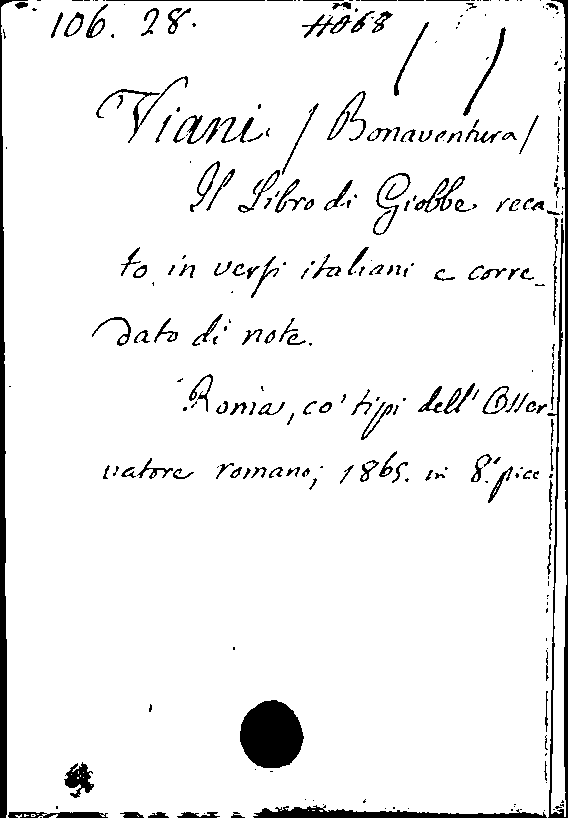 106. 28. 11068
Viani / Bonaventura /
Il Libro di Giobbe reca-
to in versi italiani e corre-
dato di note.
Roma, co' tipi dell' Osser-
vatore romano; 1865. in 8.° picc.